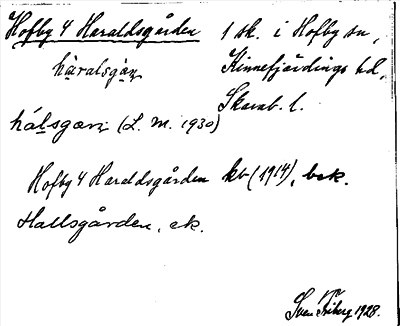 Hofby 4 Haraldsgården 1 sk. i Hofby sn,
hàralsgàṇ Kinnefjärdings hd,
Skarab. l.
hálsgaṇ (L. M. 1930)
Hofby 4 Haraldsgården kb (1914), bek.
Hallsgården, ek.
Sven Friberg 1928.